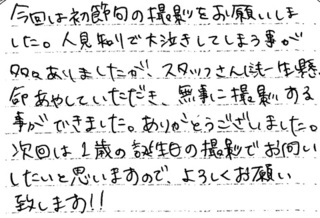 今回は初節句の撮影をお願いしま
した。人見知りで大泣きしてしまう事が
多々ありましたが、スタッフさんに一生懸
命あやしていただき、無事に撮影する
事ができました。ありがとうございました。
次回は1歳の誕生日の撮影でお伺い
したいと思いますので、よろしくお願い
致します!!